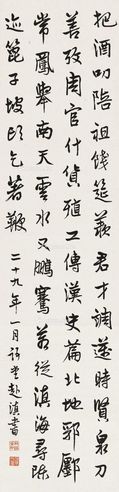 把酒叨陪祖餞筵羨君才調邁時賢泉刀
善攷周官什貨殖工傳漢史篇北地鄽
常鳳舉南天雲水又鵬騫若從滇海尋陳
迹篦子坡頭乞著鞭 二十九年一月堂赴滇書